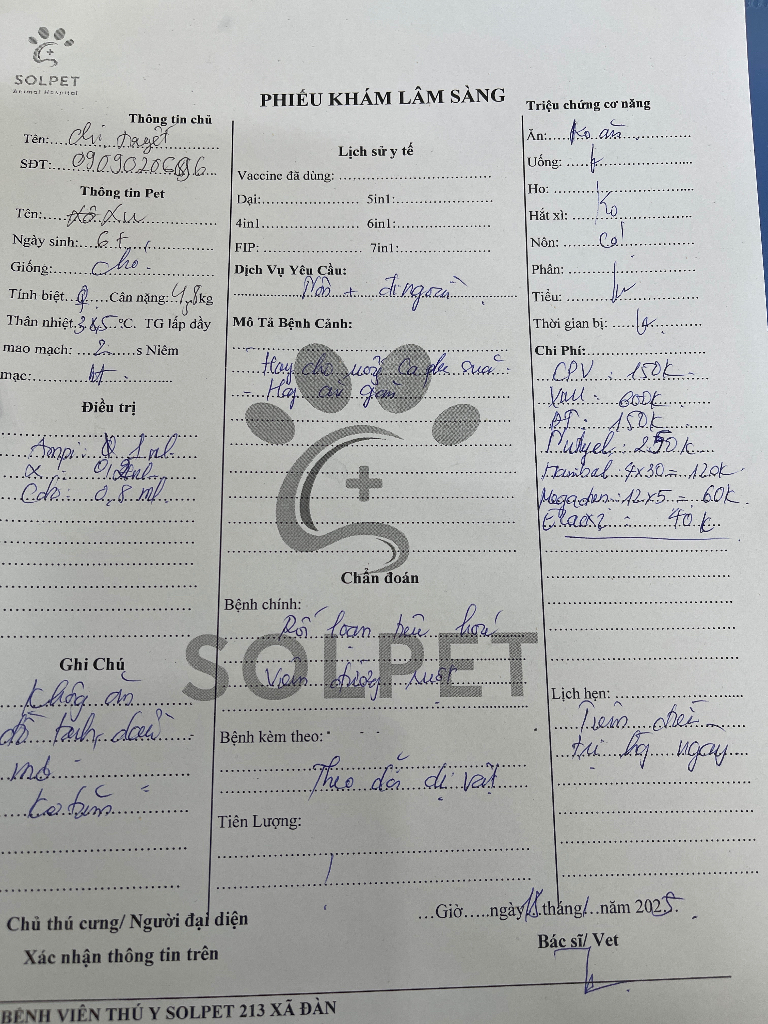 SOLPET
Animal Hospital
PHIẾU KHÁM LÂM SÀNG
Thông tin chủ
Tên: chị Tuyết
SĐT:
Thông tin Pet
Tên: Xu
Ngày sinh: 6t
Giống: chó
Tính biệt Cân nặng: 4,8kg
Thân nhiệt 38,5 °C. TG lấp đầy
mao mạch: 2 s Niêm
mạc: bt
Điều trị
Ampi: 1 ml
α
Cata: 0,8 ml
Ghi Chú
Không ăn
đồ tanh, dầu
mỡ
Ko tắm
Lịch sử y tế
Vaccine đã dùng:
Dại: 5in1:
4in1 6in1:
FIP: 7in1:
Dịch Vụ Yêu Cầu:
Nôn + đi ngoài
Mô Tả Bệnh Cảnh:
- Hay cho uống sữa
- Hay ăn gặm
SOLPET
Chẩn đoán
Bệnh chính:
Rối loạn tiêu hoá
Viêm đường ruột
Bệnh kèm theo:
Theo dõi dị vật
Tiên Lượng:
Triệu chứng cơ năng
Ăn: Ko ăn
Uống:
Ho:
Hắt xì: Ko
Nôn: Có
Phân:
Tiểu:
Thời gian bị:
Chi Phí:
CPV: 150K
600K
150K
250K
4x30 = 120K
12x5 = 60K
40K
Lịch hẹn:
Tiêm điều
trị hg ngày
Giờ ngày 18 tháng 1 năm 2025
Chủ thú cưng/ Người đại diện
Xác nhận thông tin trên
Bác sĩ/ Vet
BỆNH VIỆN THÚ Y SOLPET 213 XÃ ĐÀN